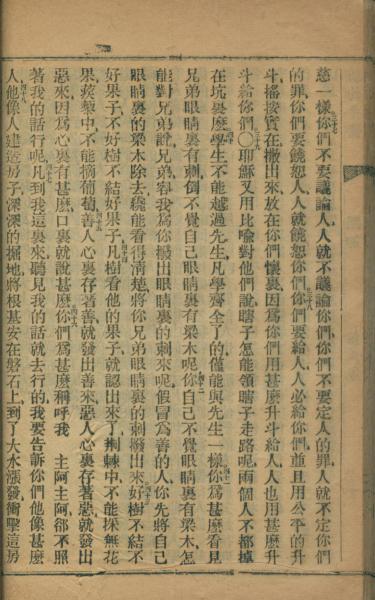 慈一樣你們不要議論人人就不議論你們你們不要定人的罪人就不定你們
的罪你們要饒恕人人就饒恕你們你們要給人人必給你們並且用公平的升
斗搖按實在撒出來放在你們懷裏因爲你們用甚麼升斗給人人也用甚麼升
斗給你們〇耶穌又用比喻對他們說瞎子怎能領瞎子走路呢兩個人不都掉
在坑裏麼學生不能越過先生凡學齊全了的僅能與先生一樣你爲甚麼看見
兄弟眼睛裏有刺倒不覺自己眼睛裏有梁木呢你自己不覺眼睛裏有梁木怎
能對兄弟說兄弟容我爲你撥出眼睛裏的刺來呢假冒爲善的人你先將自己
眼睛裏的梁木除去纔能看得淸楚將你兄弟眼睛裏的刺撥出來好樹不結不
好果子不好樹不結好果子凡樹看他的果子就認出來了荆棘中不能採無花
果蒺藜中不能摘葡萄善人心裏存著善就發出善來惡人心裏存著惡就發出
惡來因爲心裏有甚麼口裏就說甚麼你們爲甚麼稱呼我 主阿主阿卻不照
著我的話行呢凡到我這裏來聽見我的話就去行的我要告訴你們他像甚麼
人他像人建造房子深深的掘地將根基安在磐石上到了大水漲發衝擊這房